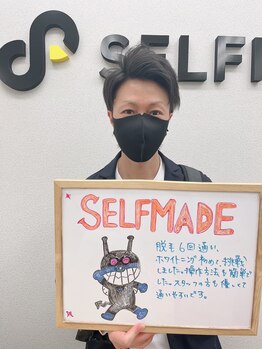 SELFM
SELFMADE
脱毛6回通い、
ホワイトニング初めて、挑戦
しました。操作方法も簡単で
した。スタッフの方も優しくて
通いやすいです。